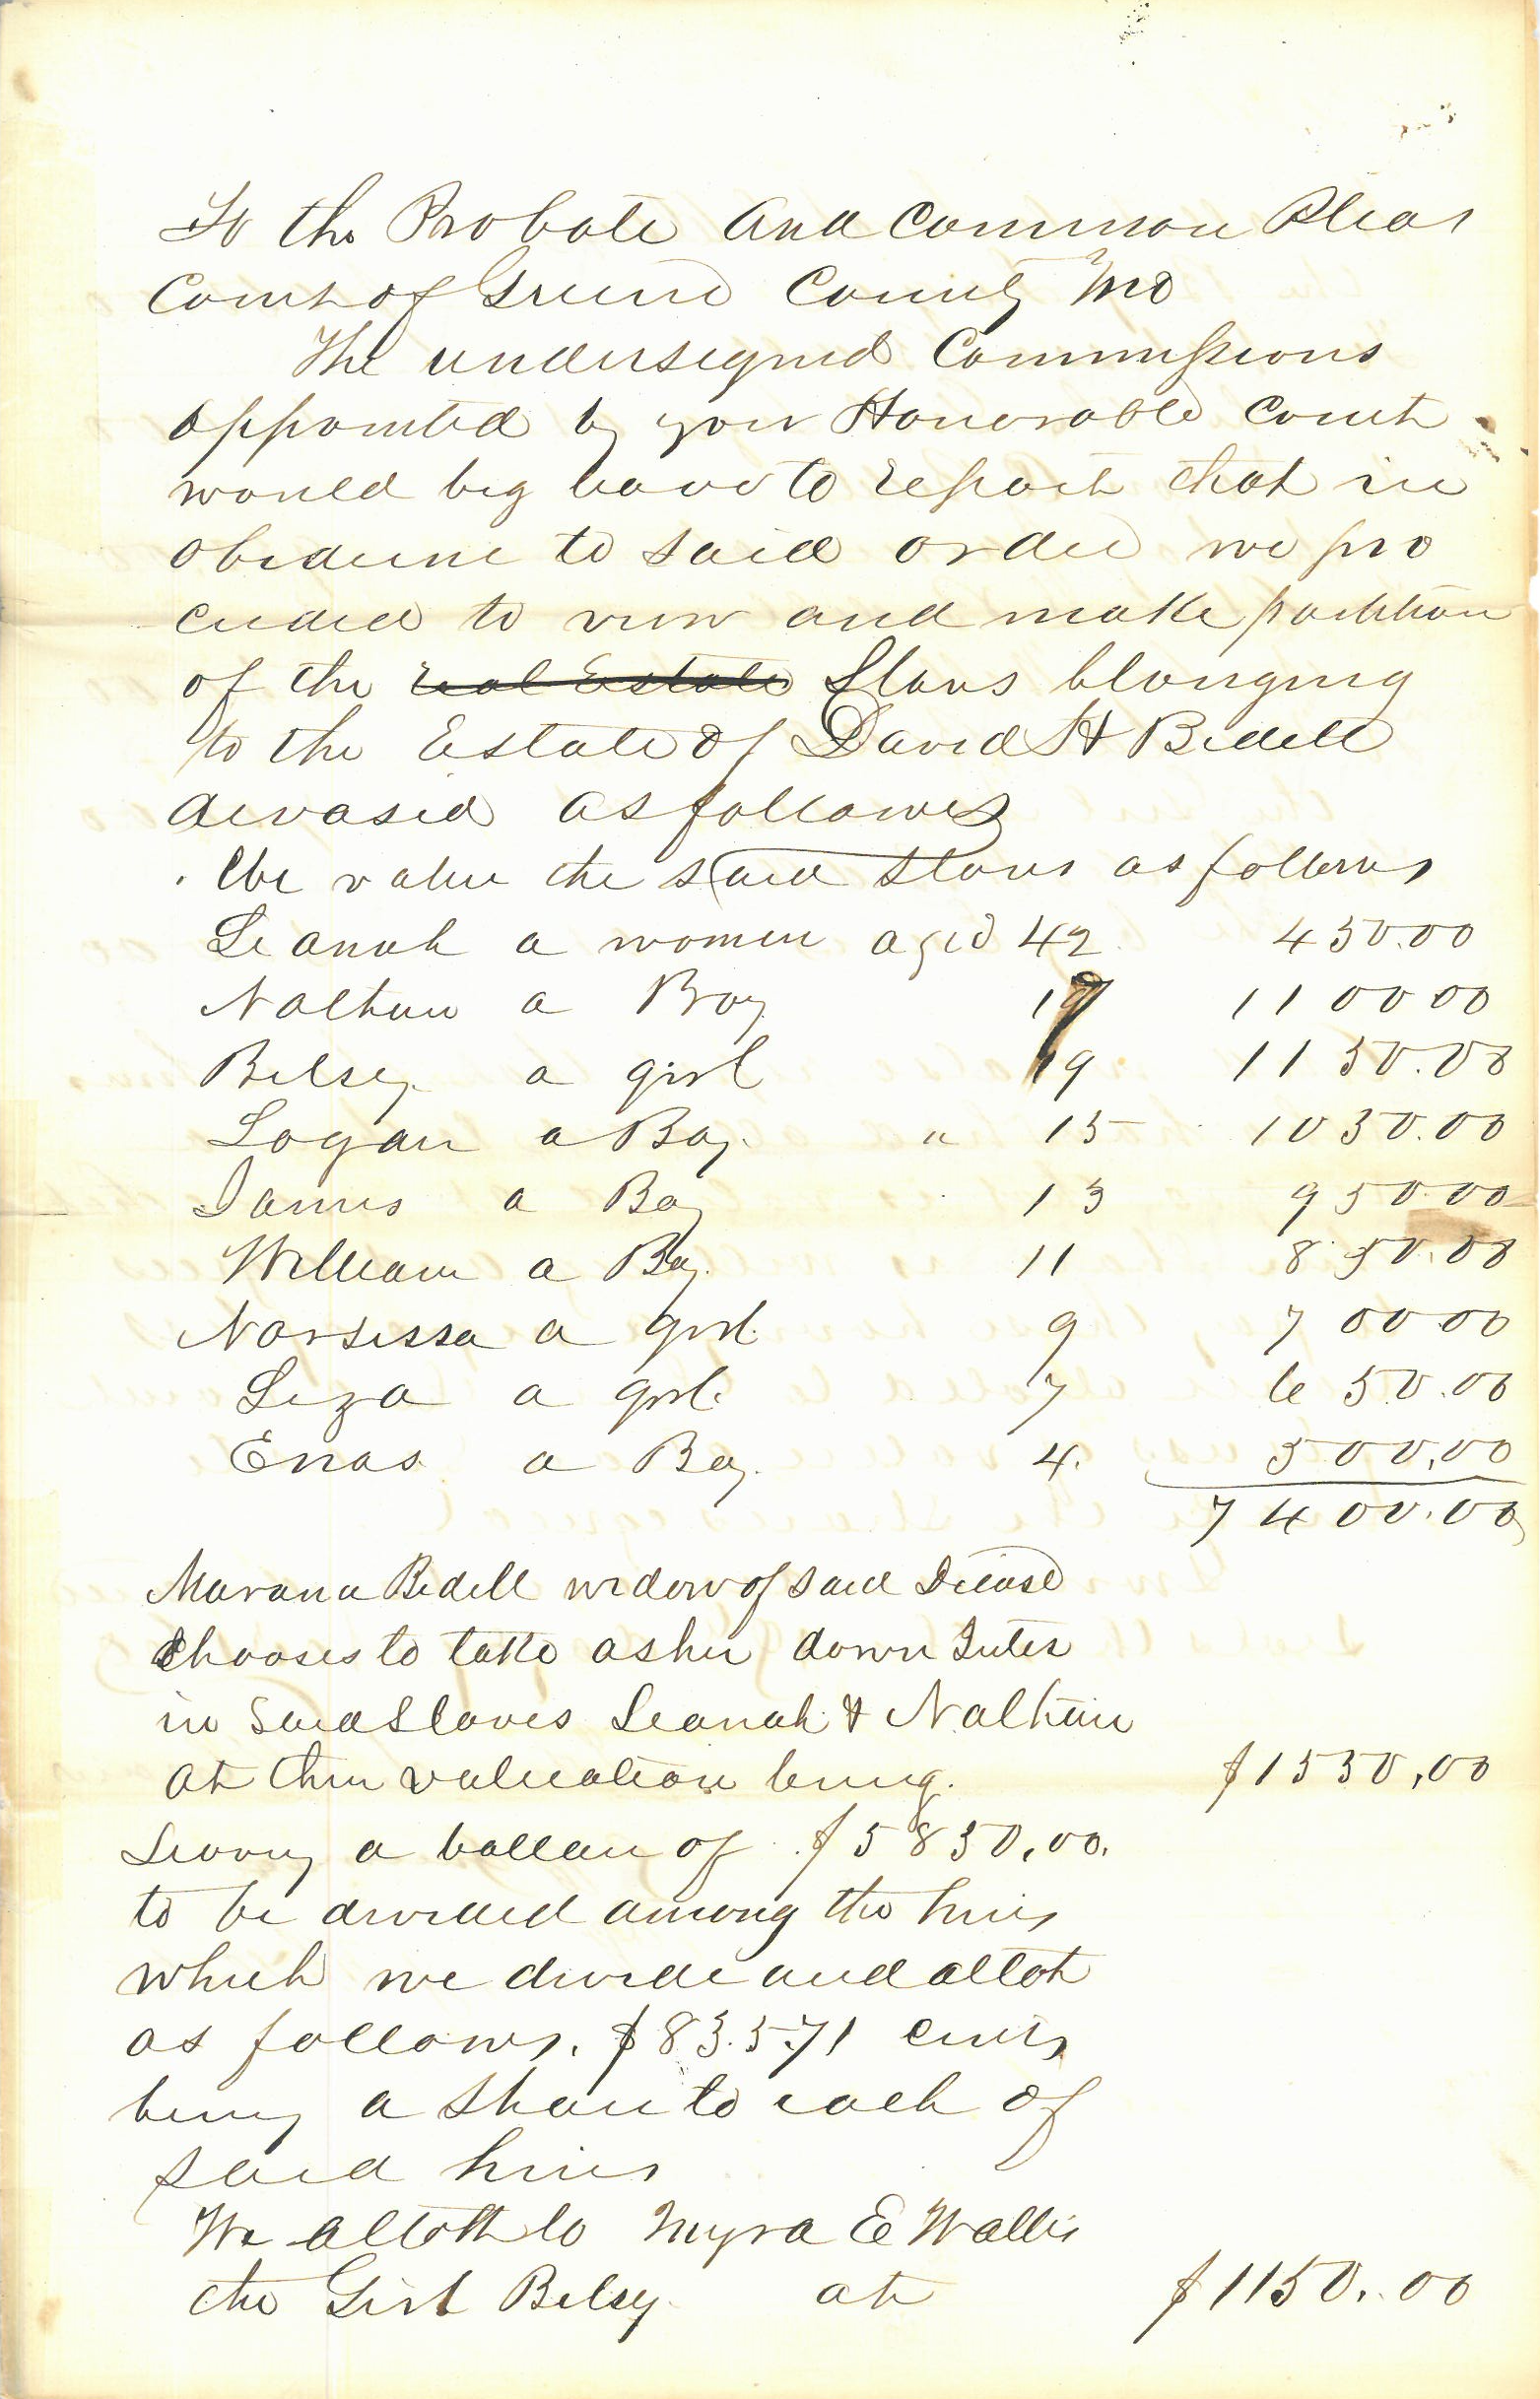 To the Probate and Common Pleas
Court of Greene County Mo
The undersigned Commissions
appointed by your Honorable Court
would beg leave to report that in
obediene to said order we pro
ceeded to view and make partition
of the real Estate Slaves blonging
to the Estate of David H Bedell
deceased as follows
We value the said Slaves as follows
Leanah a women aged 42 450.00
Nathan a Boy 19 1100 00
Betsey a girl 19 1150.00
Logan a Boy " 15 1050.00
James a Boy 13 950.00
William a Boy 11 850.00
Narsissa a girl 9 700 00
Liza a girl 7 650.00
Enas a Boy 4. 500,00
7400.00
Bedell widow of said Deceasd
Chooses to take as her dower Inters
in said Slaves Leanah & Nathan
at their valuation being. $1550,00
Leaving a ballan of $5850,00.
to be divided among the heirs
which we divide and allot
as follows. $83.5.71 cents
being a share to each of
said heirs
We allott to Myra E Wallis
the Girl Betsey at $1150.00